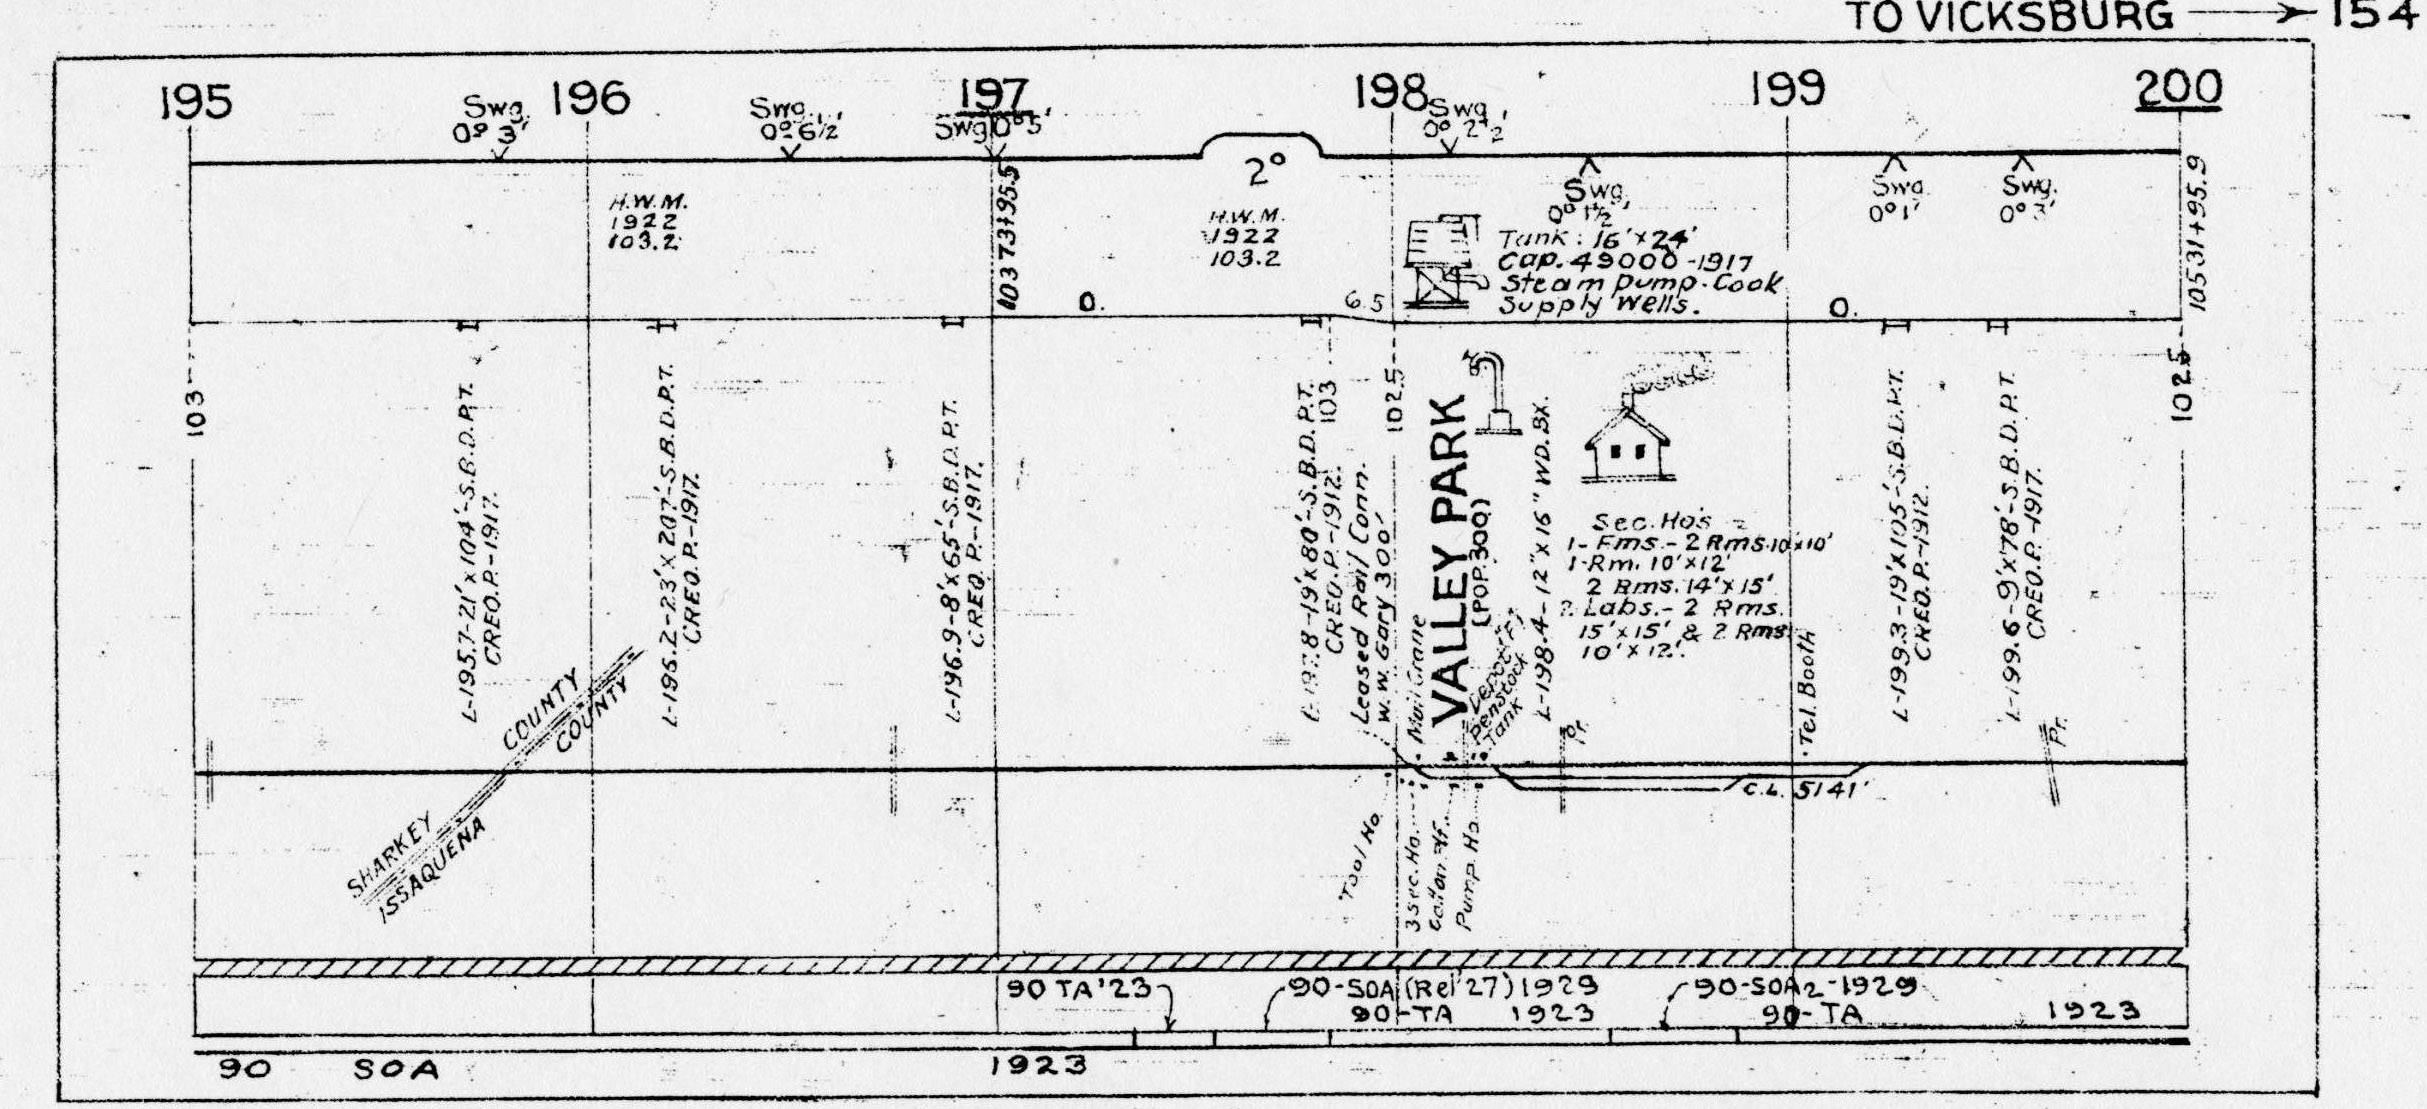 TO VICKSBURG → 154
195
196
197
198
199
200
Swg.
0° 3'
Swg.
0° 6½'
Swg 0° 5'
Swg.
0° 2½'
2°
Swg.
0° 1½'
Swg.
0° 1'
Swg.
0° 3'
H.W.M.
1922
103.2
10373+95.5
H.W.M.
1922
103.2
Tank: 16'x24'
Cap. 49000-1917
Steam Pump-Cook
Supply Wells.
10531+95.9
0.
6.5
0.
103
103
102.5
102.5
L-195.7-21'x104'-S.B.D.P.T.
CREO.P.-1917.
L-196.2-23'x207'-S.B.D.P.T.
CREO.P.-1917.
L-196.9-8'x65'-S.B.D.P.T.
CREO.P.-1917.
L-197.8-19'x80'-S.B.D.P.T.
CREO.P.-1912.
Leased Rail Conn.
W.W. Gary 300'
Mail Crane
VALLEY PARK
(POP. 300)
Depot
Penstock
Tank
L-198.4-12"x16" WD.BX.
Sec. Ho's
1-Fms.-2 Rms.10'x10'
1-Rm. 10'x12'
2 Rms. 14'x15'
2 Labs.-2 Rms.
15'x15' & 2 Rms.
10'x12'.
Tel. Booth
L-199.3-19'x105'-S.B.D.P.T.
CREO.P.-1912.
L-199.6-9'x78'-S.B.D.P.T
CREO.P.-1917.
Pr.
Pr.
COUNTY
COUNTY
SHARKEY
ISSAQUENA
C.L. 5141'
Tool Ho.
3 Sec. Ho.
Pump Ho.
90 TA '23
90-SOA (Rel '27) 1929
90-TA 1923
90-SOA2-1929
90-TA 1923
90 SOA 1923